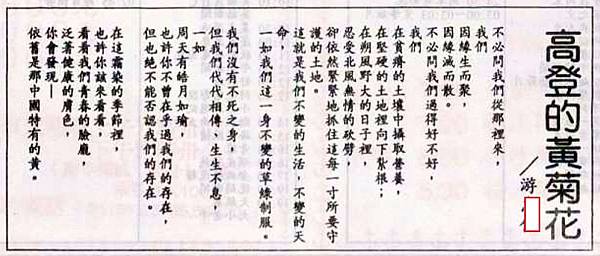 高登的黃菊花
／游
不必問我們從那裡來，
我們
因緣生而聚，
因緣滅而散。
不必問我們過得好不好，
我們
在貧瘠的土壤中攝取營養，
在堅硬的土地裡向下紮根；
在朔風野大的日子裡，
忍受北風無情的砍劈，
卻依然緊緊地抓住這每一寸所要守
護的土地。
這就是我們不變的生活，不變的天
命，
一如我們這一身不變的草綠制服。
我們沒有不死之身，
但我們代代相傳，生生不息，
一如
周天有皓月如瑜。
也許你不曾在乎過我們的存在，
但也絕不能否認我們的存在。
在這霜染的季節裡
也許你該來看看，
看看我們青春的臉龐，
泛著健康的膚色，
你會發現—
依舊是那中國特有的黃。